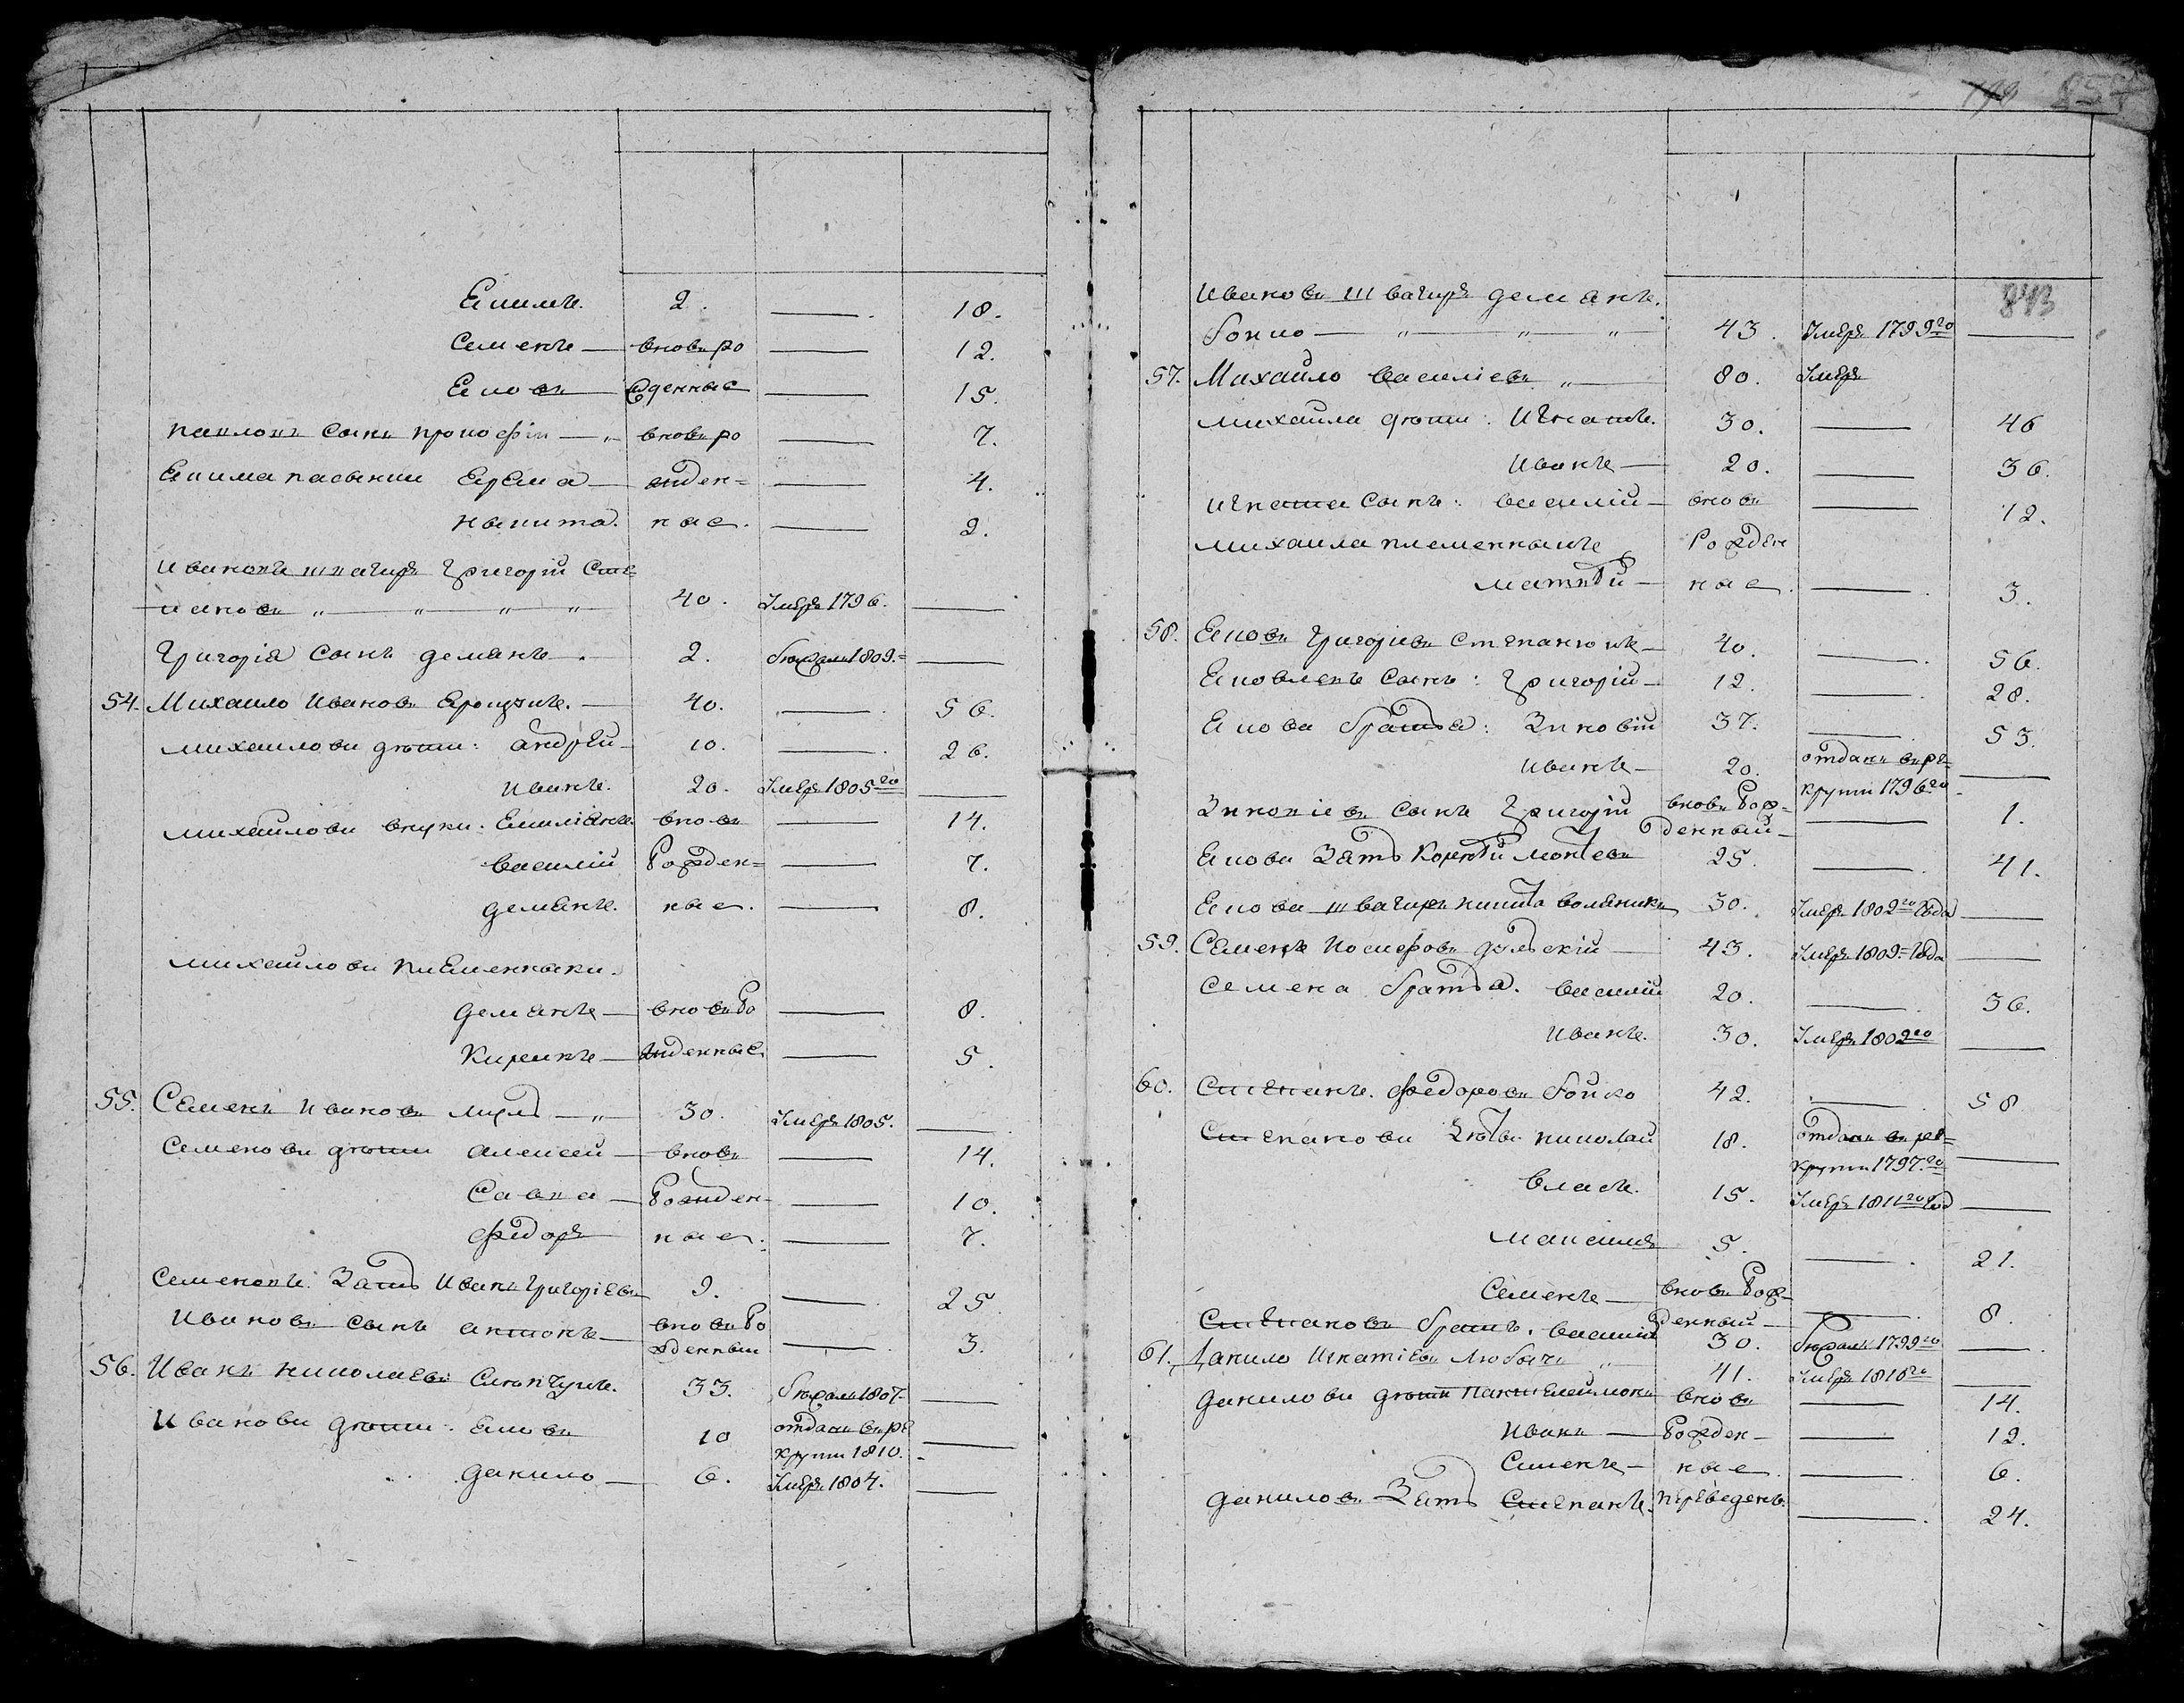 Екимъ. 2. — 18.
Семенъ — вновь ро — 12.
Яковъ жденные — 15.
Павловъ сынъ Прокофій — „ вновь ро — 7.
Екима пасынки Ерема — жден= — 4.
Никита. ные. — 2.
Ивановъ швагиръ Григорій Сте=
пановъ „ — „ — „ — „ 40. Умеръ 1796. —
Григорія сынъ Демянъ — . 2. бежалъ 1809. = —
54. Михайло Ивановъ — 40. — 56.
Михайловы дети: Андрей — 10. — 26.
Иванъ. 20. Умеръ 1805го —
Михайловы внуки: Емиліанъ. вновь — 14.
Василій рожден= — 7.
Демянъ. ные. — 8.
Михайловы племенныки.
Демянъ — вновь ро — 8.
Жденные — 5.
55. Семенъ Ивановъ — „ 30. Умеръ 1805. —
Семеновы дети Алексей — вновь — 14.
Савва — рожден — 10.
Федоръ ные. — 7.
Семеновъ зять Иванъ Григоріевъ 9. — 25.
Ивановъ сынъ Антонъ — вновь ро
жденный — 3.
56. Иванъ Николаевъ 33. бежалъ 1807 —
Ивановы дети: Яковъ 10 отданъ въ ре
круты 1810. —
Данило — 6. Умеръ 1804. —
799 857
843
Ивановъ швагиръ Демянъ.
Бойко — „ — „ — „ — 43. Умеръ 1799го —
57. Михайло Василіевъ „ — 80. Умеръ
Михайла дети: Игнатъ. 30. — 46
Иванъ — 20. — 36.
Игната сынъ: Василій — вновь — 12.
Михаила племенныкъ рожден
Матвей — ные. — 3.
58. Яковъ Григоріевъ Степанюкъ — 40. — 56.
Яковлевъ сынъ: Григорій — 12. — 28.
Якова братья: Зиновій 37. — 53.
Иванъ — 20. отданъ въ ре=
круты 1796го —
Зиновіевъ сынъ Григорій вновь рож=
денный — — 1.
Якова зять Корней 25. — 41.
Якова швагиръ Никита 30. Умеръ 1802го года —
59. Семенъ Иосифовъ 43. Умеръ 1809= года —
Семена братья. Василій 20. — 36.
Иванъ. 30. Умеръ 1802го —
60. Степанъ. Федоровъ Бойко 42. — 58
Степановы Николай 18. отданъ въ ре=
круты 1797го —
Власъ. 15. Умеръ 1811го год —
Максимъ 5. — 21.
Семенъ — вновь рож —
денный — — 8.
Степановъ братъ. Василій 30. бежалъ 1799го — .
61. Данило Игнатіевъ „ 41. Умеръ 1816го —
Даниловы дети Пантелеймонъ вновь — 14.
Иванъ — рожден — — 12.
Семенъ — ные. — 6.
Даниловъ зять Степанъ. переведенъ. — 24.